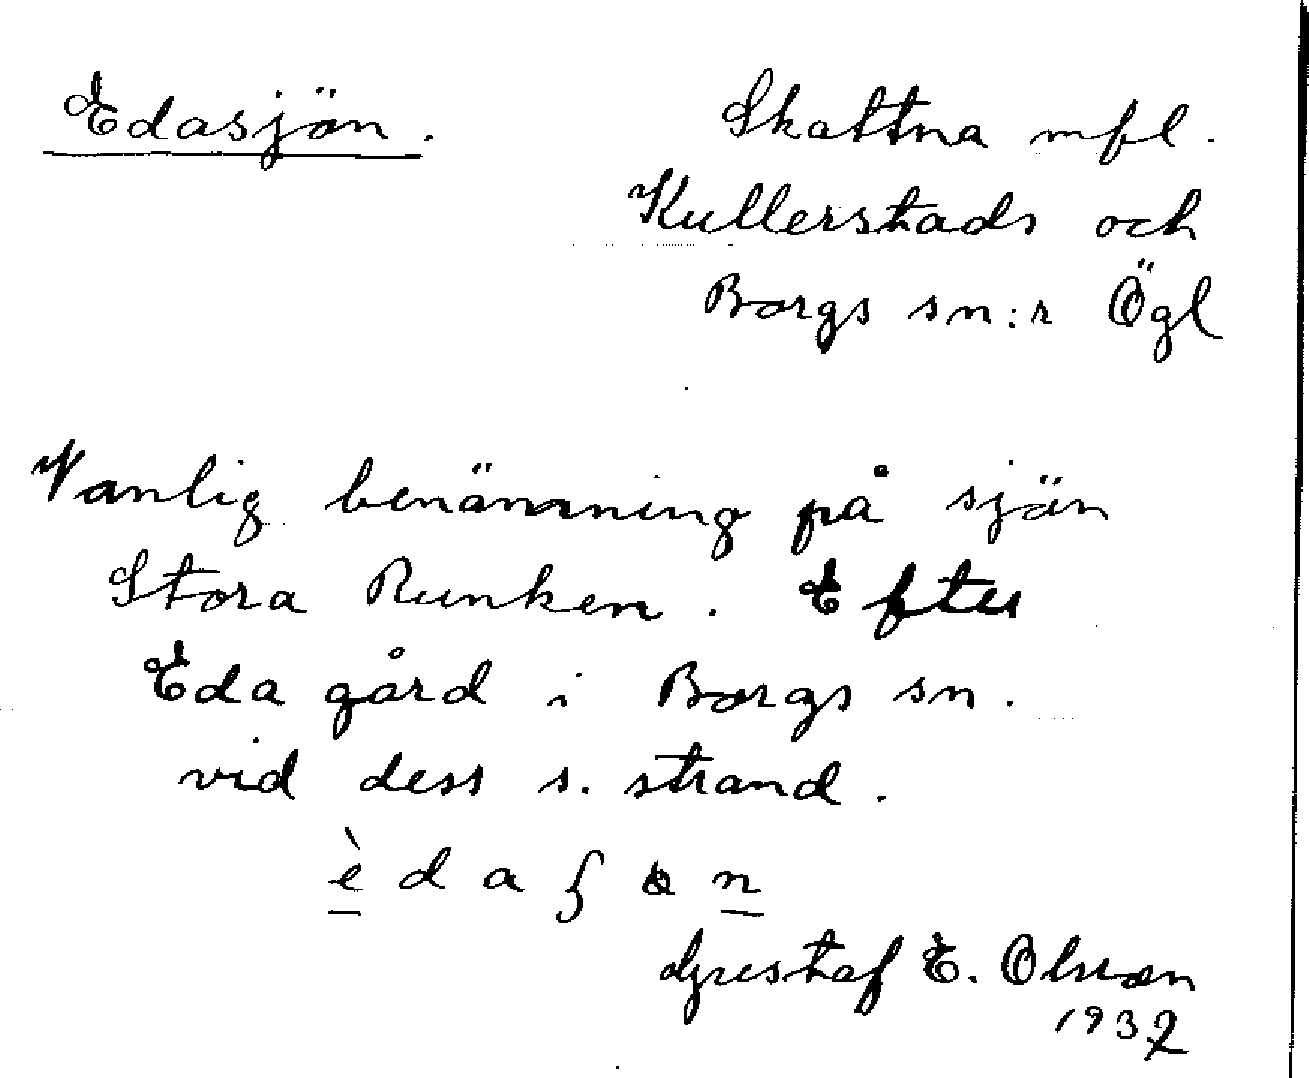 Edasjön.
Skattna mfl.
Kullerstads och
Borgs sn:r Ögl
Vanlig benämning på sjön
Stora Runken. Efter
Eda gård i Borgs sn.
vid dess s. strand.
è d a ʃ n
Gustaf E. Olsson
1937